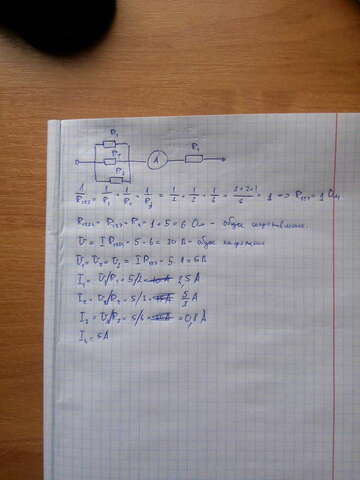 R₁
R₂
R₃
A
R₄
1/R₁₂₃ = 1/R₁ + 1/R₂ + 1/R₃ = 1/2 + 1/3 + 1/6 = 3+2+1/6 = 1 => R₁₂₃ = 1 Ом
R₁₂₃₄ = R₁₂₃ + R₄ = 1 + 5 = 6 Ом - общее сопротивление.
U = I R₁₂₃₄ = 5 · 6 = 30 В - общее напряжение
U₁ = U₂ = U₃ = I R₁₂₃ = 5 · 1 = 5 В
I₁ = U₁/R₁ = 5/2 = 2,5 А
I₂ = U₂/R₂ = 5/3 = 5/3 А
I₃ = U₃/R₃ = 5/6 = 0,8 А
I₄ = 5А